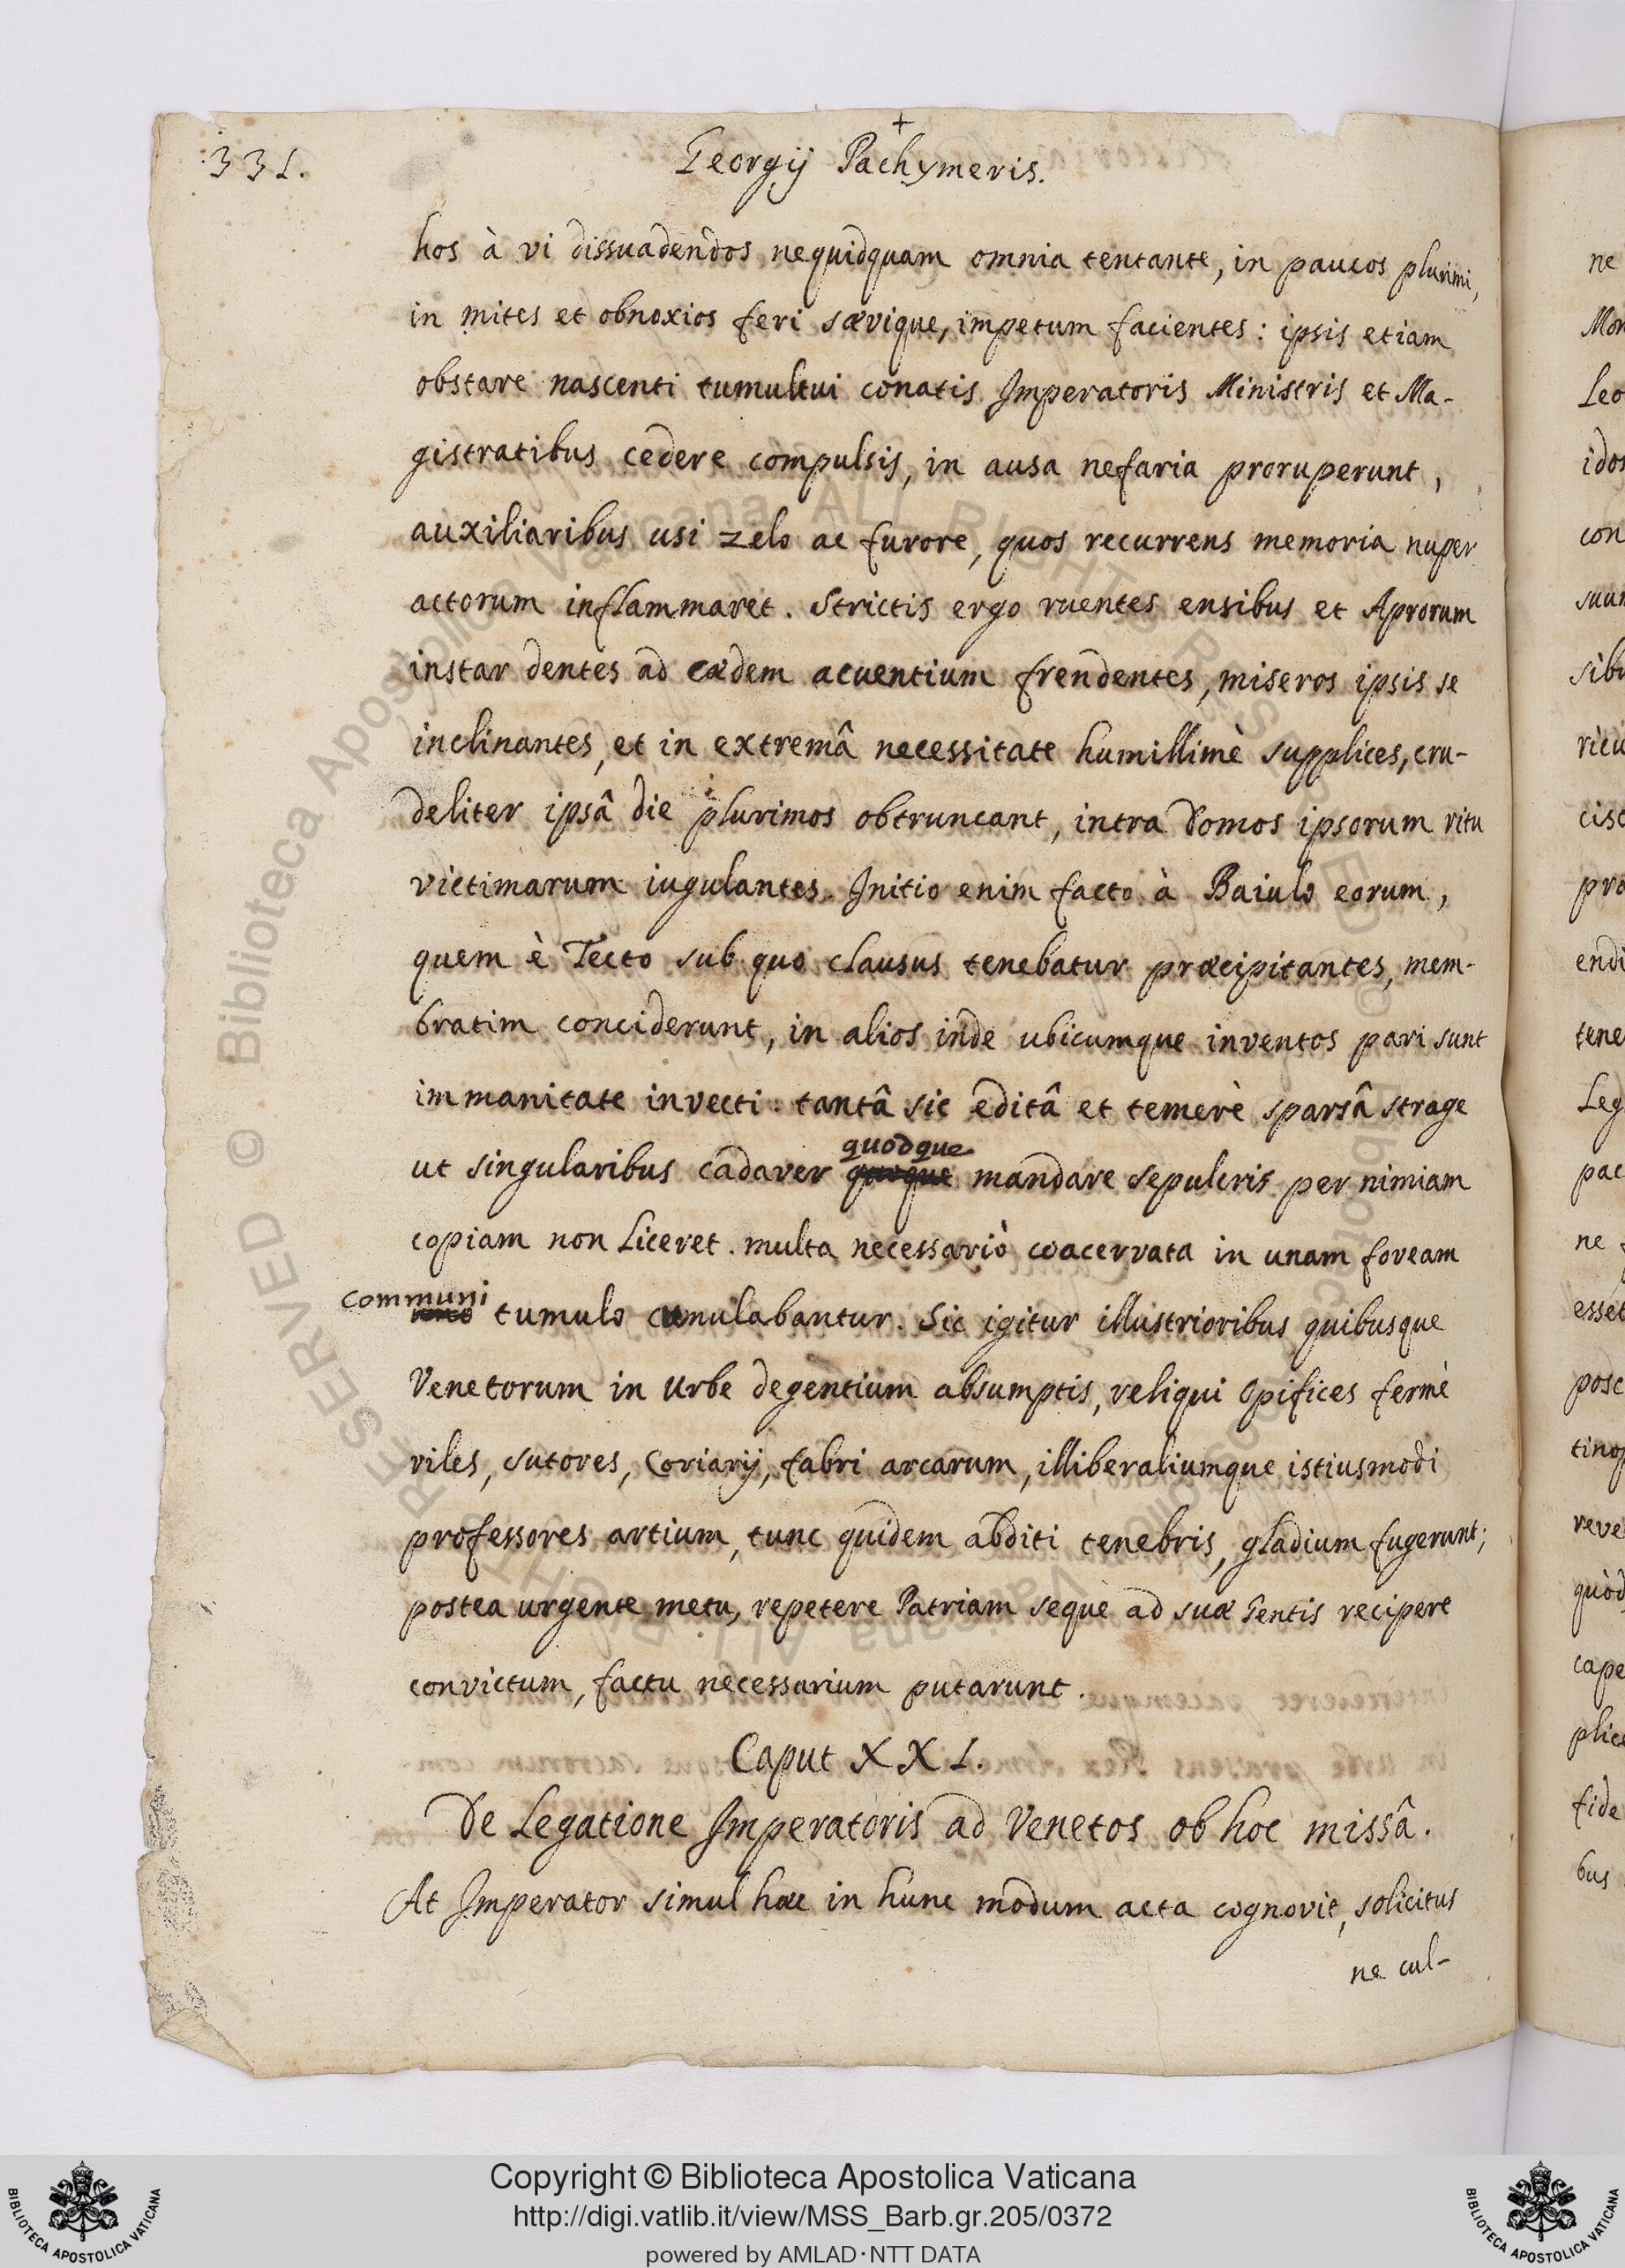 331.
+
Georgij Pachymeris.
hos à vi dissuadendos nequidquam omnia tentante, in paucos plurimi,
in mites et obnoxios feri sævique, impetum facientes: ipsis etiam
obstare nascenti tumultui conatis Imperatoris Ministris et Ma-
gistratibus cedere compulsis, in ausa nefaria proruperunt,
auxiliaribus usi zelo ac furore, quos recurrens memoria nuper
actorum inflammaret. Strictis ergo ruentes ensibus et Aprorum
instar dentes ad cædem acuentium frendentes, miseros ipsis se
inclinantes, et in extremâ necessitate humillimè supplices, cru-
deliter ipsâ die plurimos obtruncant, intra Domos ipsorum ritu
victimarum iugulantes. Initio enim facto à Baiulo eorum,
quem è Tecto sub quo clausus tenebatur præcipitantes, mem-
bratim conciderunt, in alios inde ubicumque inventos pari sunt
immanitate invecti: tantâ sic editâ et temerè sparsâ strage
quodque
ut singularibus cadaver mandare sepulcris per nimiam
copiam non liceret. multa necessariò coacervata in unam foveam
communi tumulo cumulabantur. Sic igitur illustrioribus quibusque
Venetorum in Urbe degentium absumptis, reliqui Opifices fermè
viles, sutores, Coriarij, fabri arcarum, illiberaliumque istiusmodi
professores artium, tunc quidem abditi tenebris, gladium fugerunt;
postea urgente metu, repetere Patriam seque ad suæ Gentis recipere
convictum, factu necessarium putarunt.
Caput XXI.
De Legatione Imperatoris ad Venetos ob hoc missâ.
At Imperator simul hæc in hunc modum acta cognovit, solicitus
ne cul-
ne
Leo
con
sibu
pro
endi
tene
Leg
pac
ne
esset
posc
reve
quòd
cape
fide
bus
© Biblioteca Apostolica Vaticana ALL RIGHTS RESERVED
Copyright © Biblioteca Apostolica Vaticana
http://digi.vatlib.it/view/MSS_Barb.gr.205/0372
powered by AMLAD·NTT DATA
BIBLIOTECA APOSTOLICA VATICANA
BIBLIOTECA APOSTOLICA VATICANA